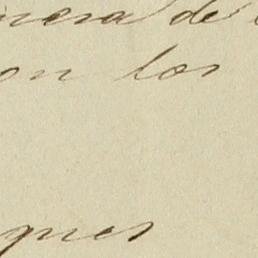 nera de
on los
ques